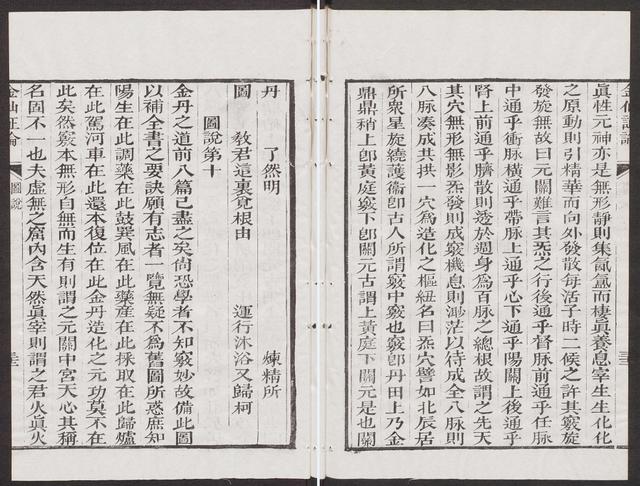 金仙證論
三三
眞性元神亦是無形靜則集氤氳而棲眞養息宰生生化化
之原動則引精華而向外發散每活子時二候之許其竅旋
發旋無故曰元關難言其炁之行後通乎督脈前通乎任脈
中通乎衝脈橫通乎帶脈上通乎心下通乎陽關上後通乎
腎上前通乎臍散則透於週身為百脈之總根故謂之先天
其穴無形無影炁發則成竅機息則渺茫以待成全八脈則
八脈湊成其拱一穴為造化之樞紐名曰炁穴譬如北辰居
所衆星旋繞護衞卽古人所謂竅中竅也竅卽丹田上乃金
鼎鼎稍上卽黃庭竅下卽關元古謂上黃庭下關元是也關
丹 了然明 煉精所
圖 教君這裏覓根由 運行沐浴又歸柯
圖說第十
金丹之道前八篇已盡之矣尙恐學者不知竅妙故備此圖
以補全書之要訣願有志者一覽無疑不為舊圖所惑庶知
陽生在此調藥在此鼓巽風在此藥產在此採取在此歸爐
在此駕河車在此還本復位在此金丹造化之元功莫不在
此矣然竅本無形自無而生有則謂之元關中宮天心其稱
名固不一也夫虛無之窟內含天然眞宰則謂之君火眞火
金仙正論
圖說
三三